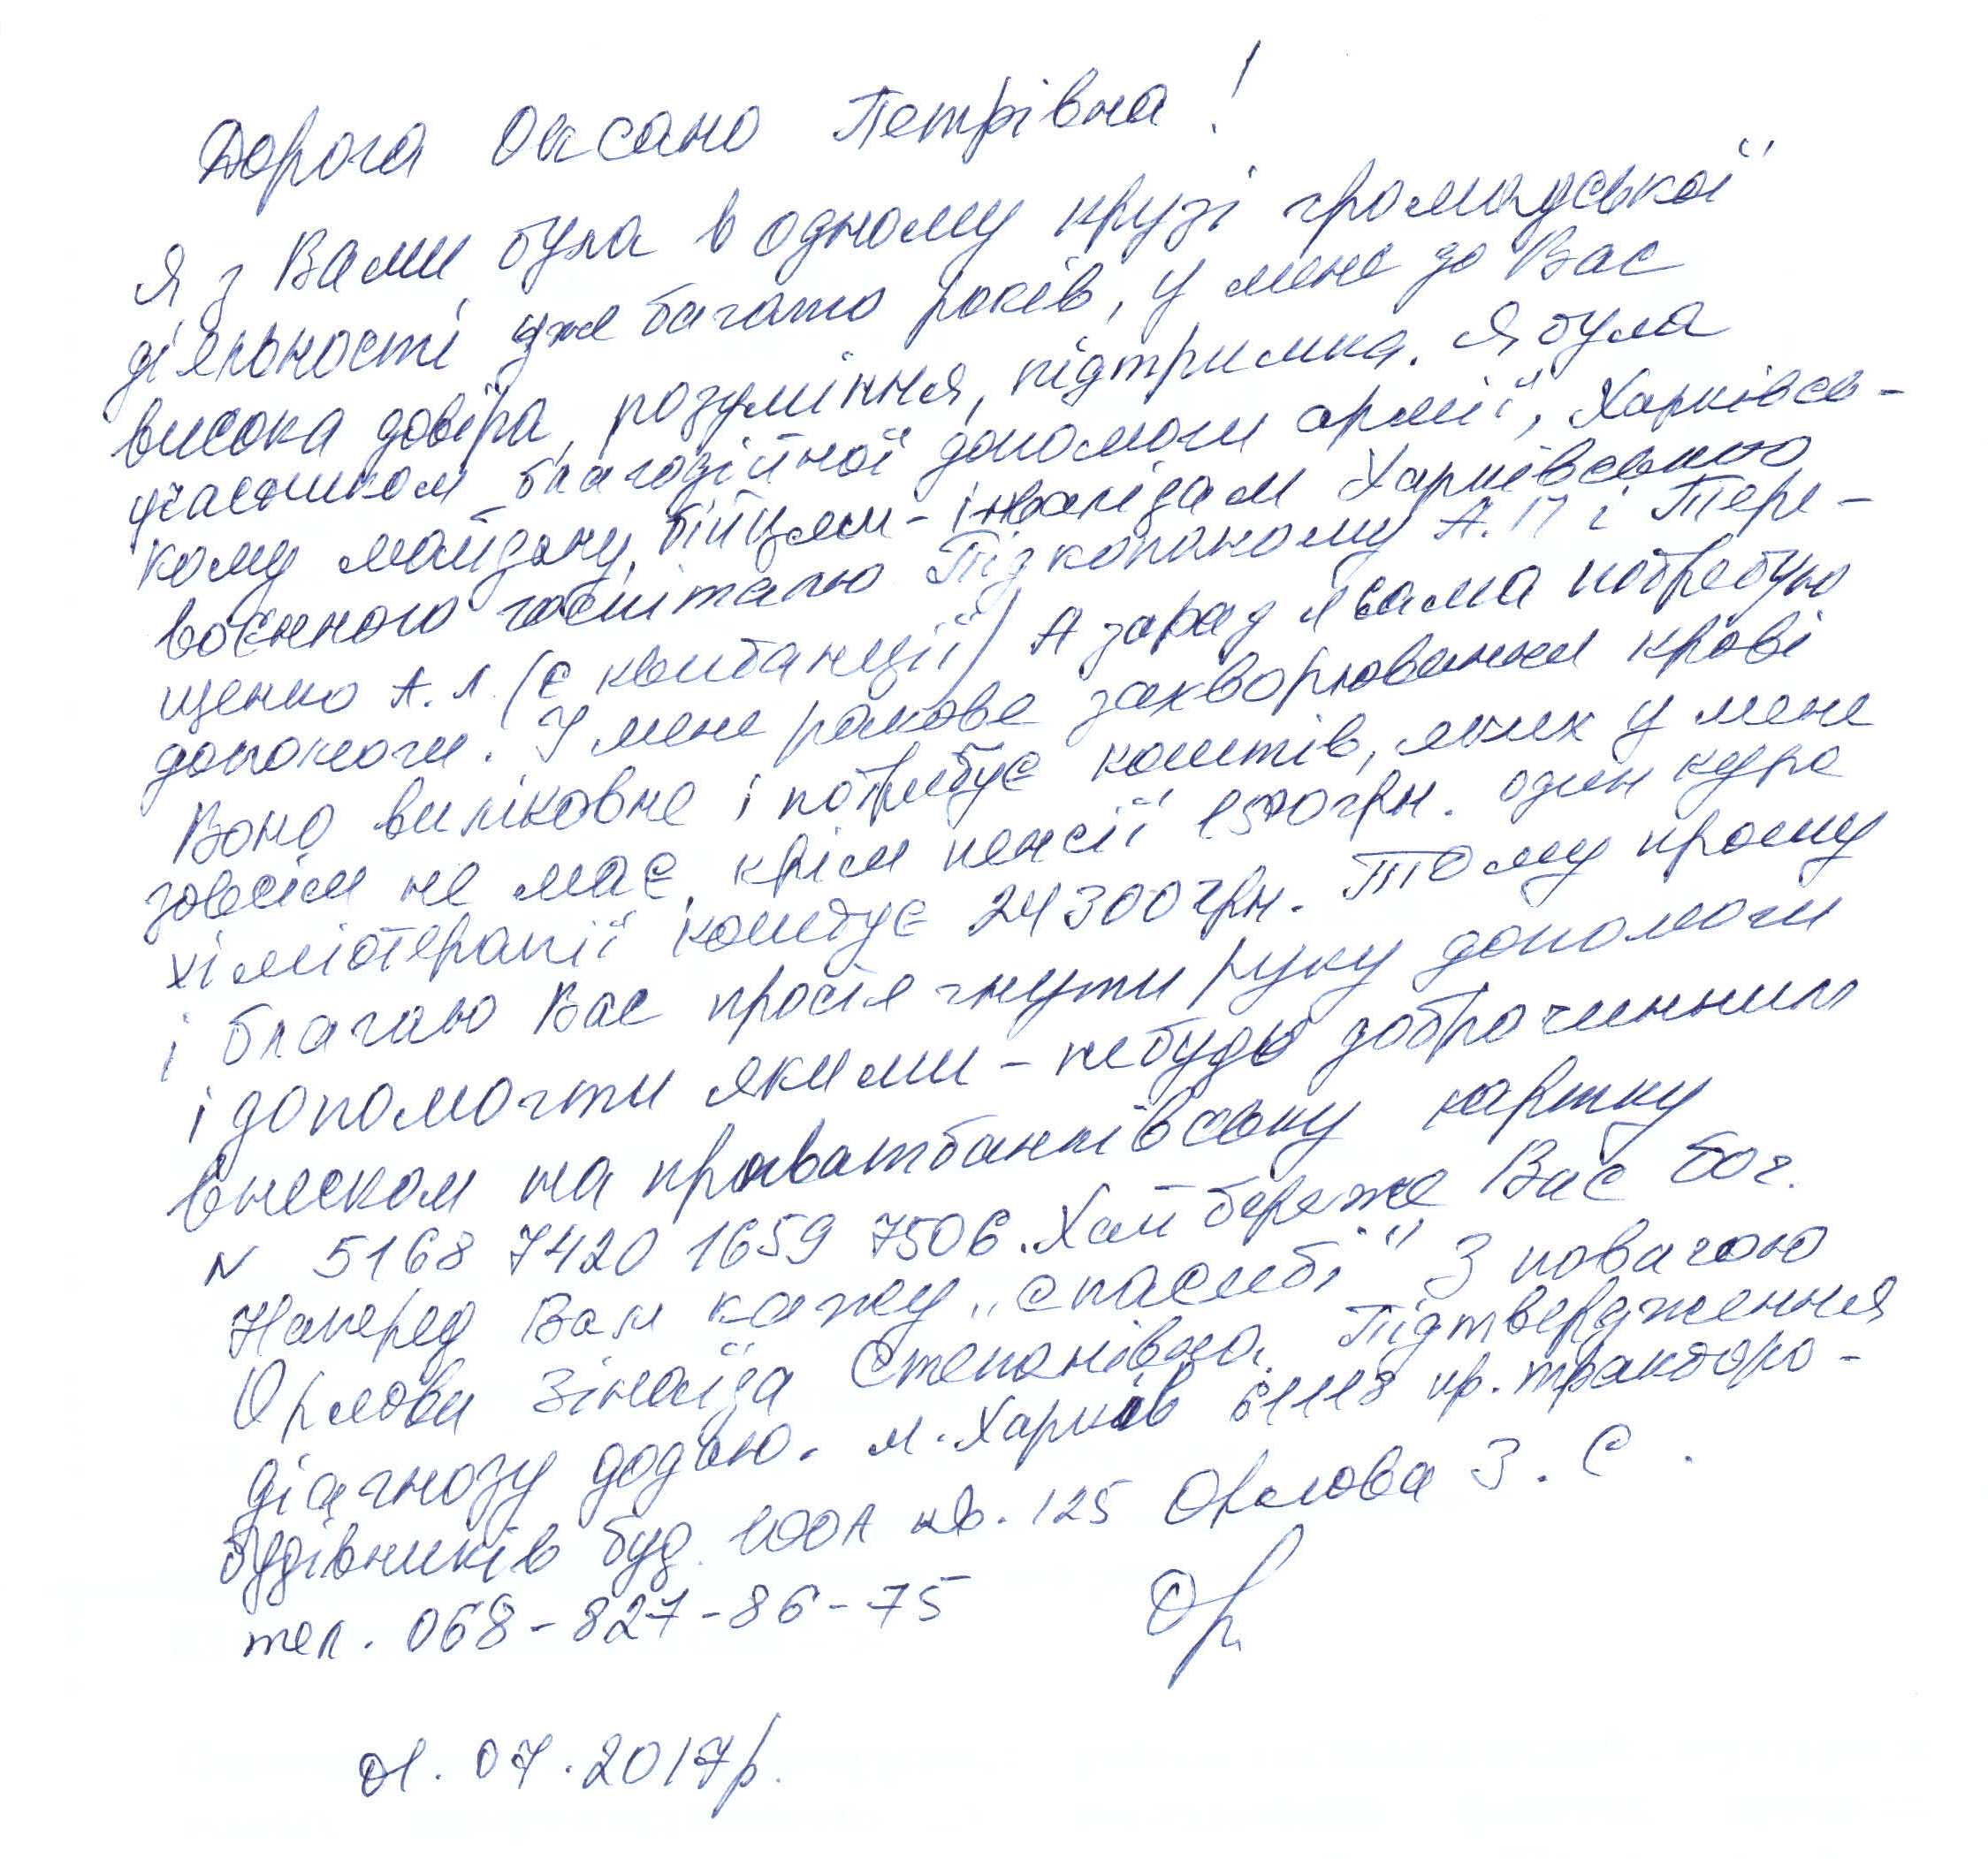 Дорога Оксано Петрівна!
Я з Вами була в одному крузі громадської
діяльності уже багато років, у мене до Вас
висока довіра, розуміння, підтримка. Я була
учасником благодійної допомоги армії, Харківсь-
кому майдану, бійцям-інвалідам Харківського
воєнного госпіталю Підкопаному А.П і Тере-
щенко А.Л. (є квитанції) А зараз я сама потребую
допомоги. У мене ракове захворювання крові
Воно виліковне і потребує коштів, яких у мене
зовсім не має, крім пенсії 1500грн. один курс
хіміотерапії коштує 24300грн. Тому прошу
і благаю Вас простягнути руку допомоги
і допомогти якими-небудь доброчинним
внеском на приватбанківську картку
N 5168 7420 1659 7506. Хай береже Вас Бог.
Наперед Вам кажу „спасибі" З повагою
Орлова Зінаїда Степанівна. Підтвердження
діагнозу додаю. м. Харків 61118 пр. тракторо-
будівників буд. 100А кв. 125 Орлова З. С.
тел. 068-827-86-75 Ор
01.07.2017р.